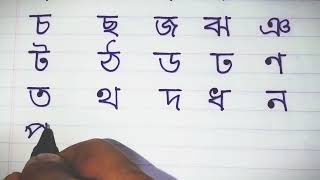 চ ছ জ ঝ ঞ
ট ঠ ড ঢ ণ
ত থ দ ধ ন
প